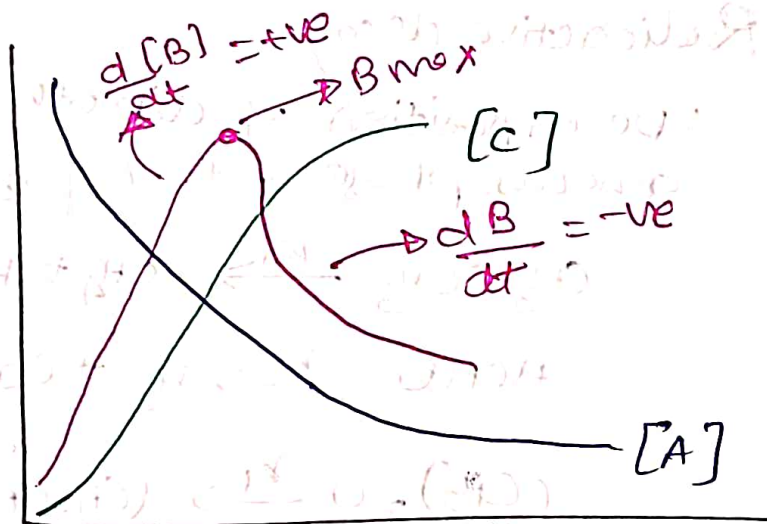 d[B]/dt = +ve
B max
[C]
dB/dt = -ve
[A]